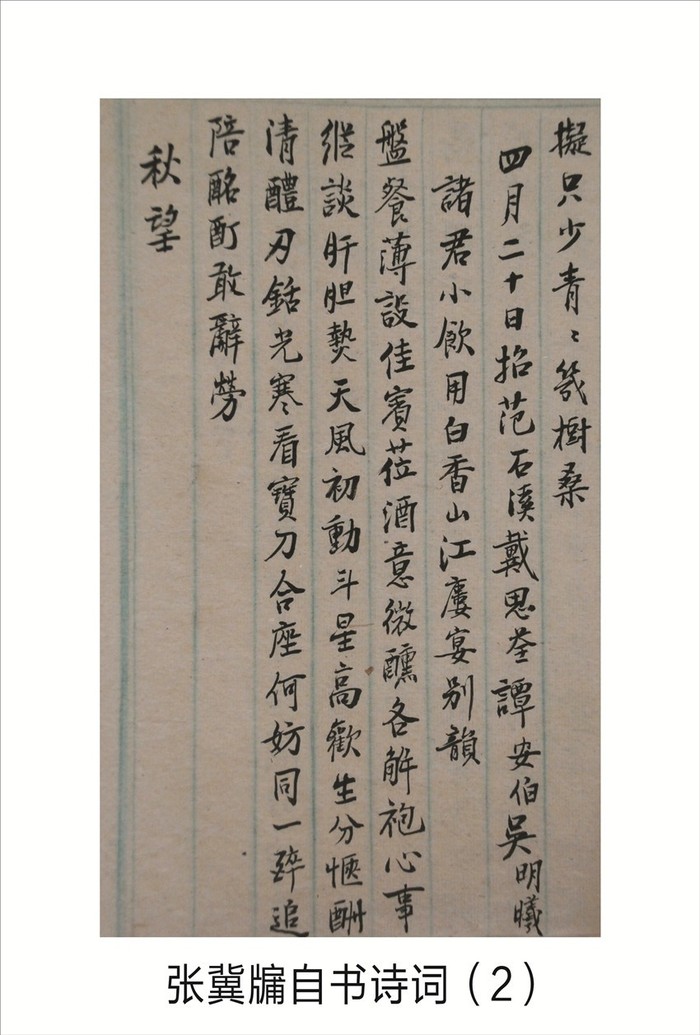 擬只少青〻幾樹桑
四月二十日招范石溪戴思荃譚安伯吳明曦
諸君小飲用白香山江廔宴别韻
盤餐薄設佳賓莅酒意微醺各解袍心事
縱談肝胆爇天風初動斗星高歡生分愜酬
清醴刃銛光寒看寶刀合座何妨同一醉追
陪酩酊敢辭勞
秋望
张冀牖自书诗词（2）